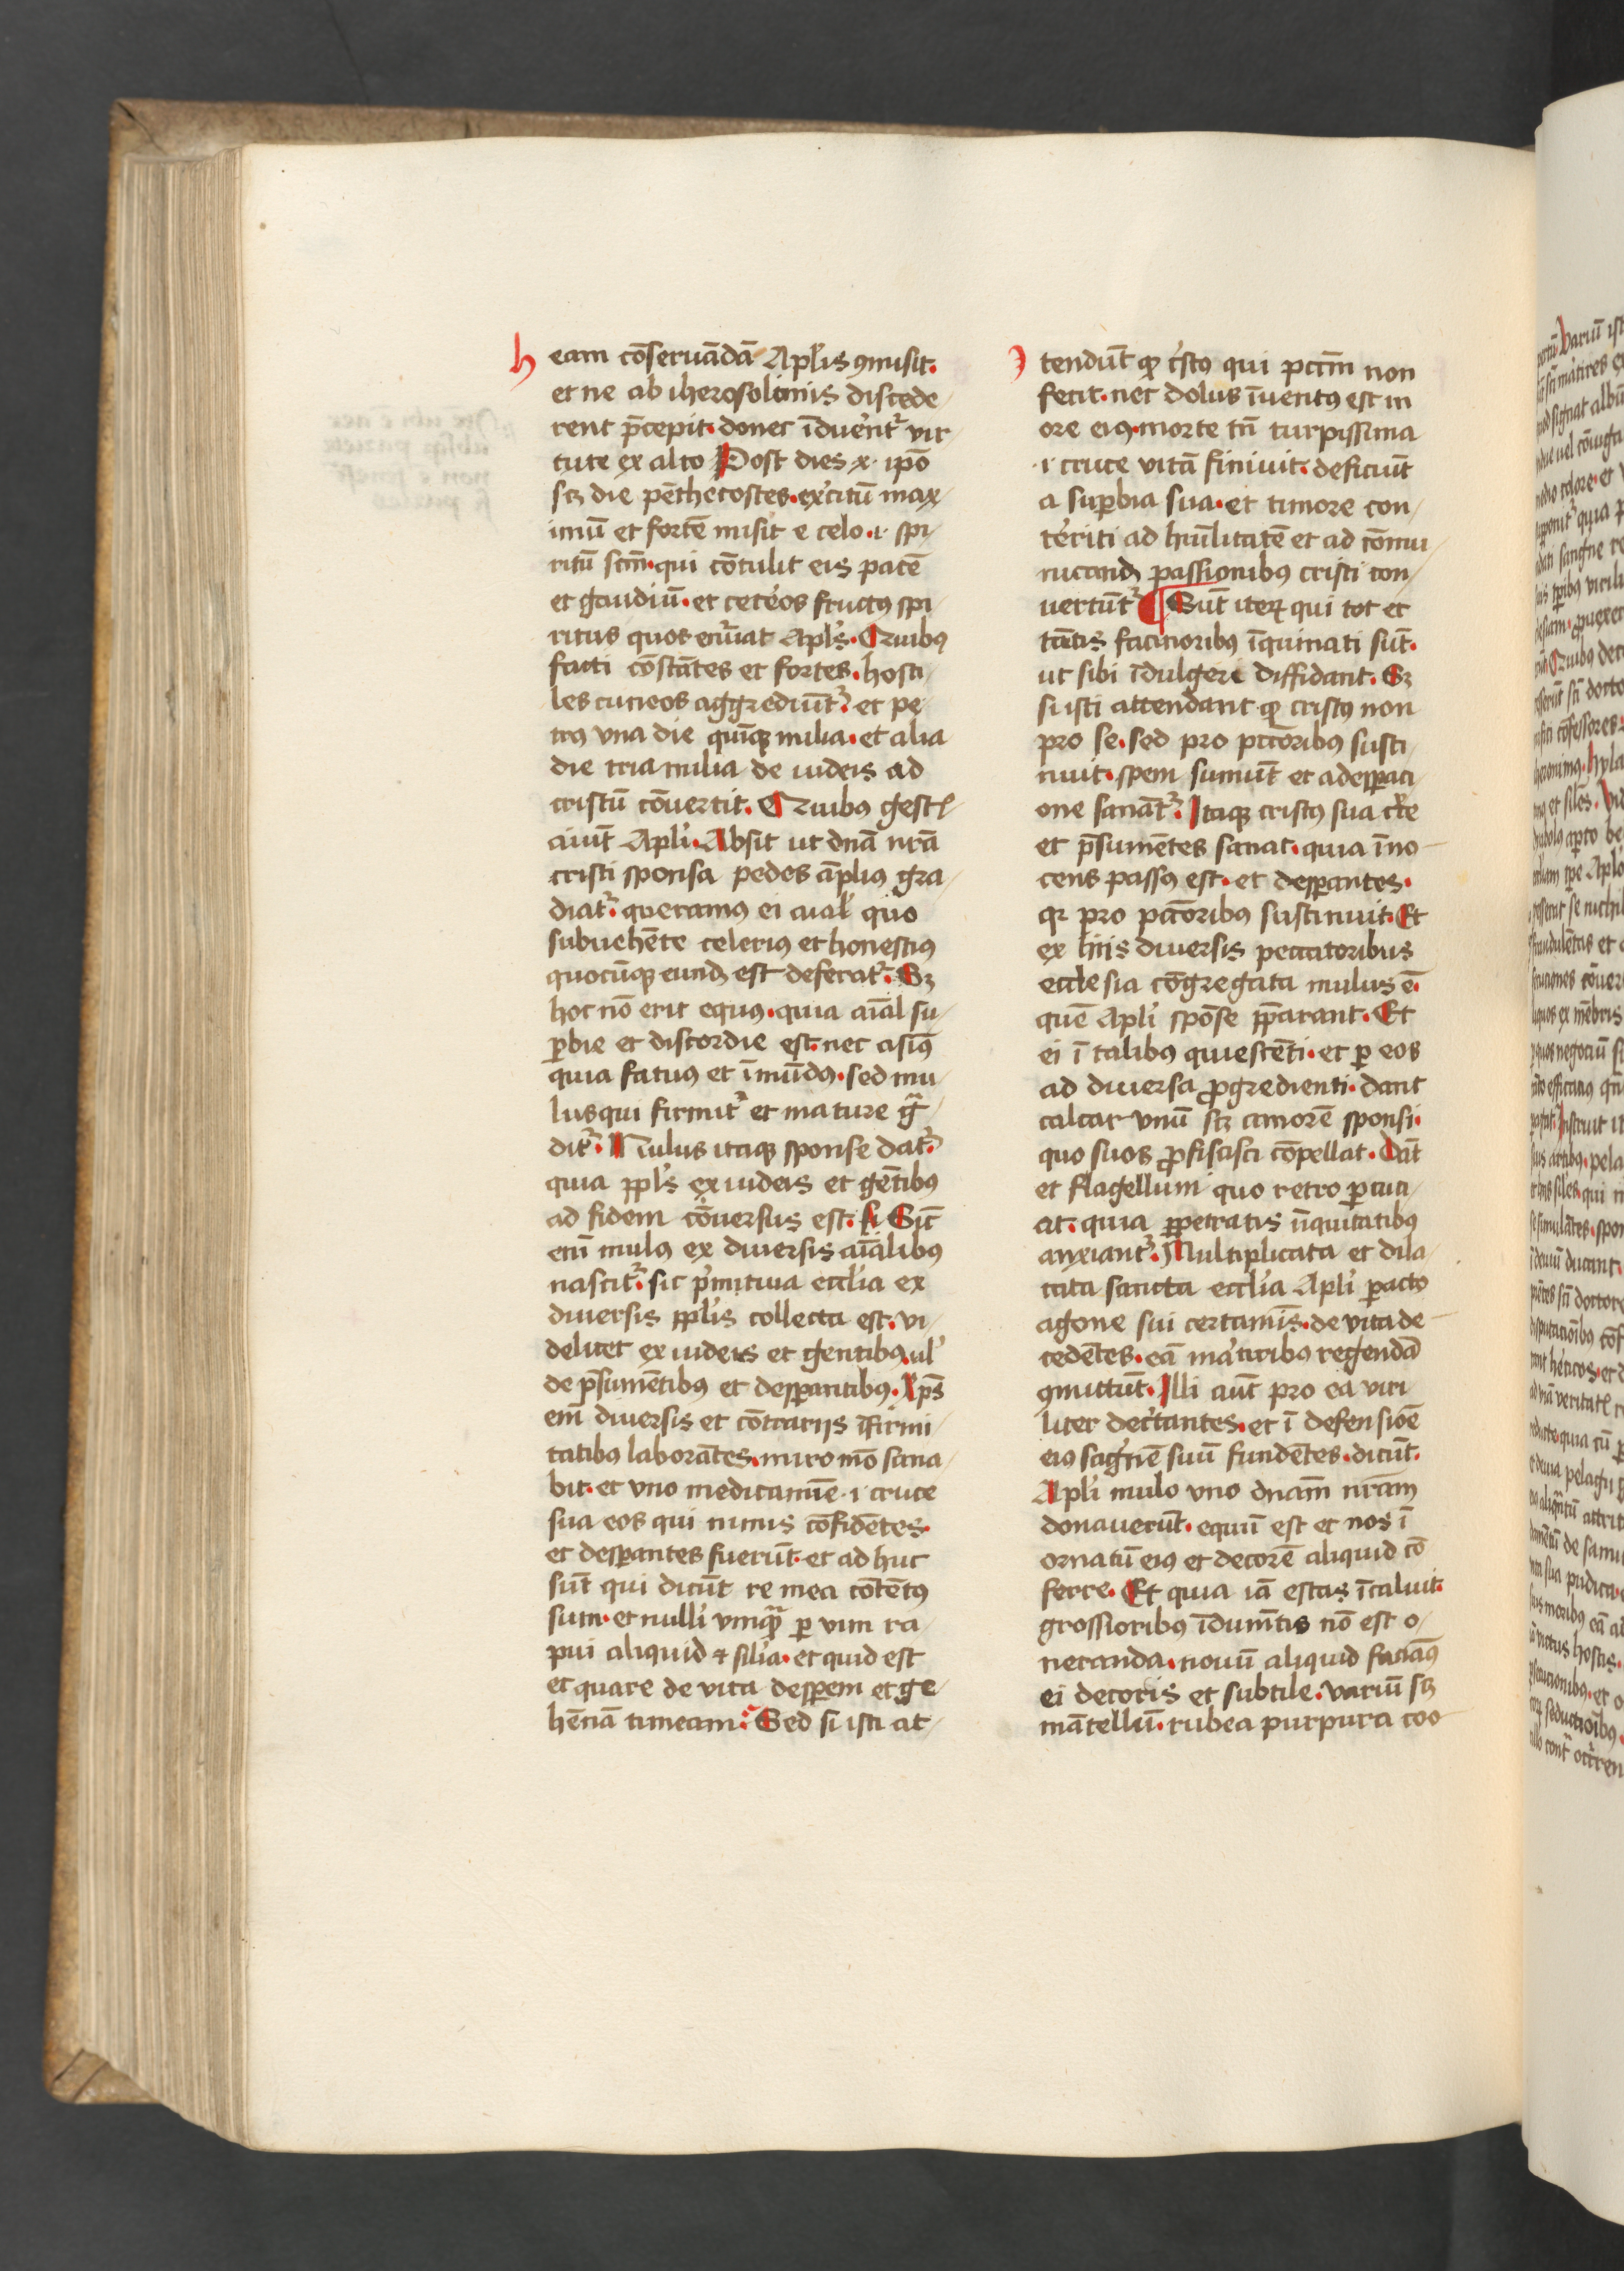 h eam cōseruādā Apl'is ꝯmisit.
et ne ab iherosolimis discede
rent p̄cepit. donec īduēr̄t' vir
tute ex alto Post dies x. ip̄o
scꝫ die pēthecostes. ex'citū max
imū et fortē misit e celo .i. spi
ritū sc̄m. qui cōtulit eis pacē
et gaudiū. et cet'os fructꝰ spi
ritus quos enu'at Apl's. Quibꝰ
facti cōstātes et fortes. hosti
les cuneos aggrediūt'. et pe
trꝰ vna die quīqꝫ milia. et alia
die tria milia de iudeis ad
cristū cōuertit. Quibus gestꝭ
aiūt Apl'i. Absit ut dn̄a nr̄a
cristi sponsa pedes āpliꝰ gra
diat'. queramꝰ ei aial' quo
subuehēte celeriꝰ et honestiꝰ
quocūqꝫ eundꝫ est deferat'. Sꝫ
hoc nō erit equꝰ. quia aīal su
ꝑbie et discordie est. nec asinꝰ
quia fatuꝰ et īmūdꝰ. sed mu
lus qui firmit' et mature gͣ
dit'. Mulus itaqꝫ sponse dat'.
quia ppl's ex iudeis et gētibꝰ
ad fidem cōuersus est. Sic̄
eni̅ mulꝰ ex diuersis aīalibꝰ
nascit'. sic p'mitiua eccl'ia ex
diuersis ppl'is collecta est. vi
delicet ex iudeis et gentibꝰ. ul'
de p̄sumētibꝰ et desꝑantibꝰ. Xp̄s
em̄ diuersis et cōtrarijs īfirmi
tatibꝰ laborātes. miro mō sana
bit. et vno medicamīe .i. cruce
sua eos qui nimis cōfidētes.
et desꝑantes fuerūt. et ad huc
sūt qui dicūt re mea cōtētꝰ
sum. et nulli vmqͣ ꝑ vim ra
pui aliquid ⁊ sil'ia. et quid est
et quare de vita desꝑem et ge
hēnā timeam. Sed si isti at
tendūt qꝫ c'sto qui pctm̄ non
fecit. nec dolus īuentꝰ est in
ore eiꝰ. morte tn̄ turpissima
.i. cruce vitā finiuit. deficiūt
a suꝑbia sua. et timore con
t'eriti ad hūilitatē et ad cōmu
nicandꝫ passionibus cristi con
uertūt' ¶ Sūt iteꝝ qui tot et
tātis facinoribꝰ īquinati sūt.
ut sibi īdulgeri diffidant. Sꝫ
si isti attendant qꝫ cristꝰ non
pro se. sed pro pctōribus susti
nuit. spem sumūt et a desꝑati
one sanāt'. Itaqꝫ cristꝰ sua c'te
et p̄sumētes sanat. quia īno
cens passꝰ est. et desꝑantes.
qꝛ pro pctōribus sustinuit. Et
ex hiis diuersis peccatoribus
ecclesia cōgregata mulus ē.
quē Apl'i spōse pꝑarant. Et
ei ī talibus quiescēti. et ꝑ eos
ad diuersa ꝓgredienti. dant
calcar vnū scꝫ amorē sponsi.
quo suos ꝓfisisci cōpellat. Dāt
et flagellum quo retro ꝑcuci
at. quia ꝑpetratis īiquitatibꝰ
anxiant'. Multiplicata et dila
tata sancta eccl'ia Apl'i ꝑacto
agone sui certamīs. de vita de
cedētes. eā ma'tiribꝰ regendā
ꝯmittūt. Illi aūt pro ea viri
liter dec'tantes. et ī defensiōe
eiꝰ sāgnē suū fundētes. dicūt.
Apl'i mulo vno dnām nr̄am
donauerūt. equū est et nos ī
ornatū eiꝰ et decorē aliquid cō
ferre. Et quia iā estas īcaluit.
grossioribꝰ īdumētis nō est o
neranda. nouū aliquid faciāꝰ
ei decoris et subtile. variū scꝫ
mātellū. rubea purpura coo